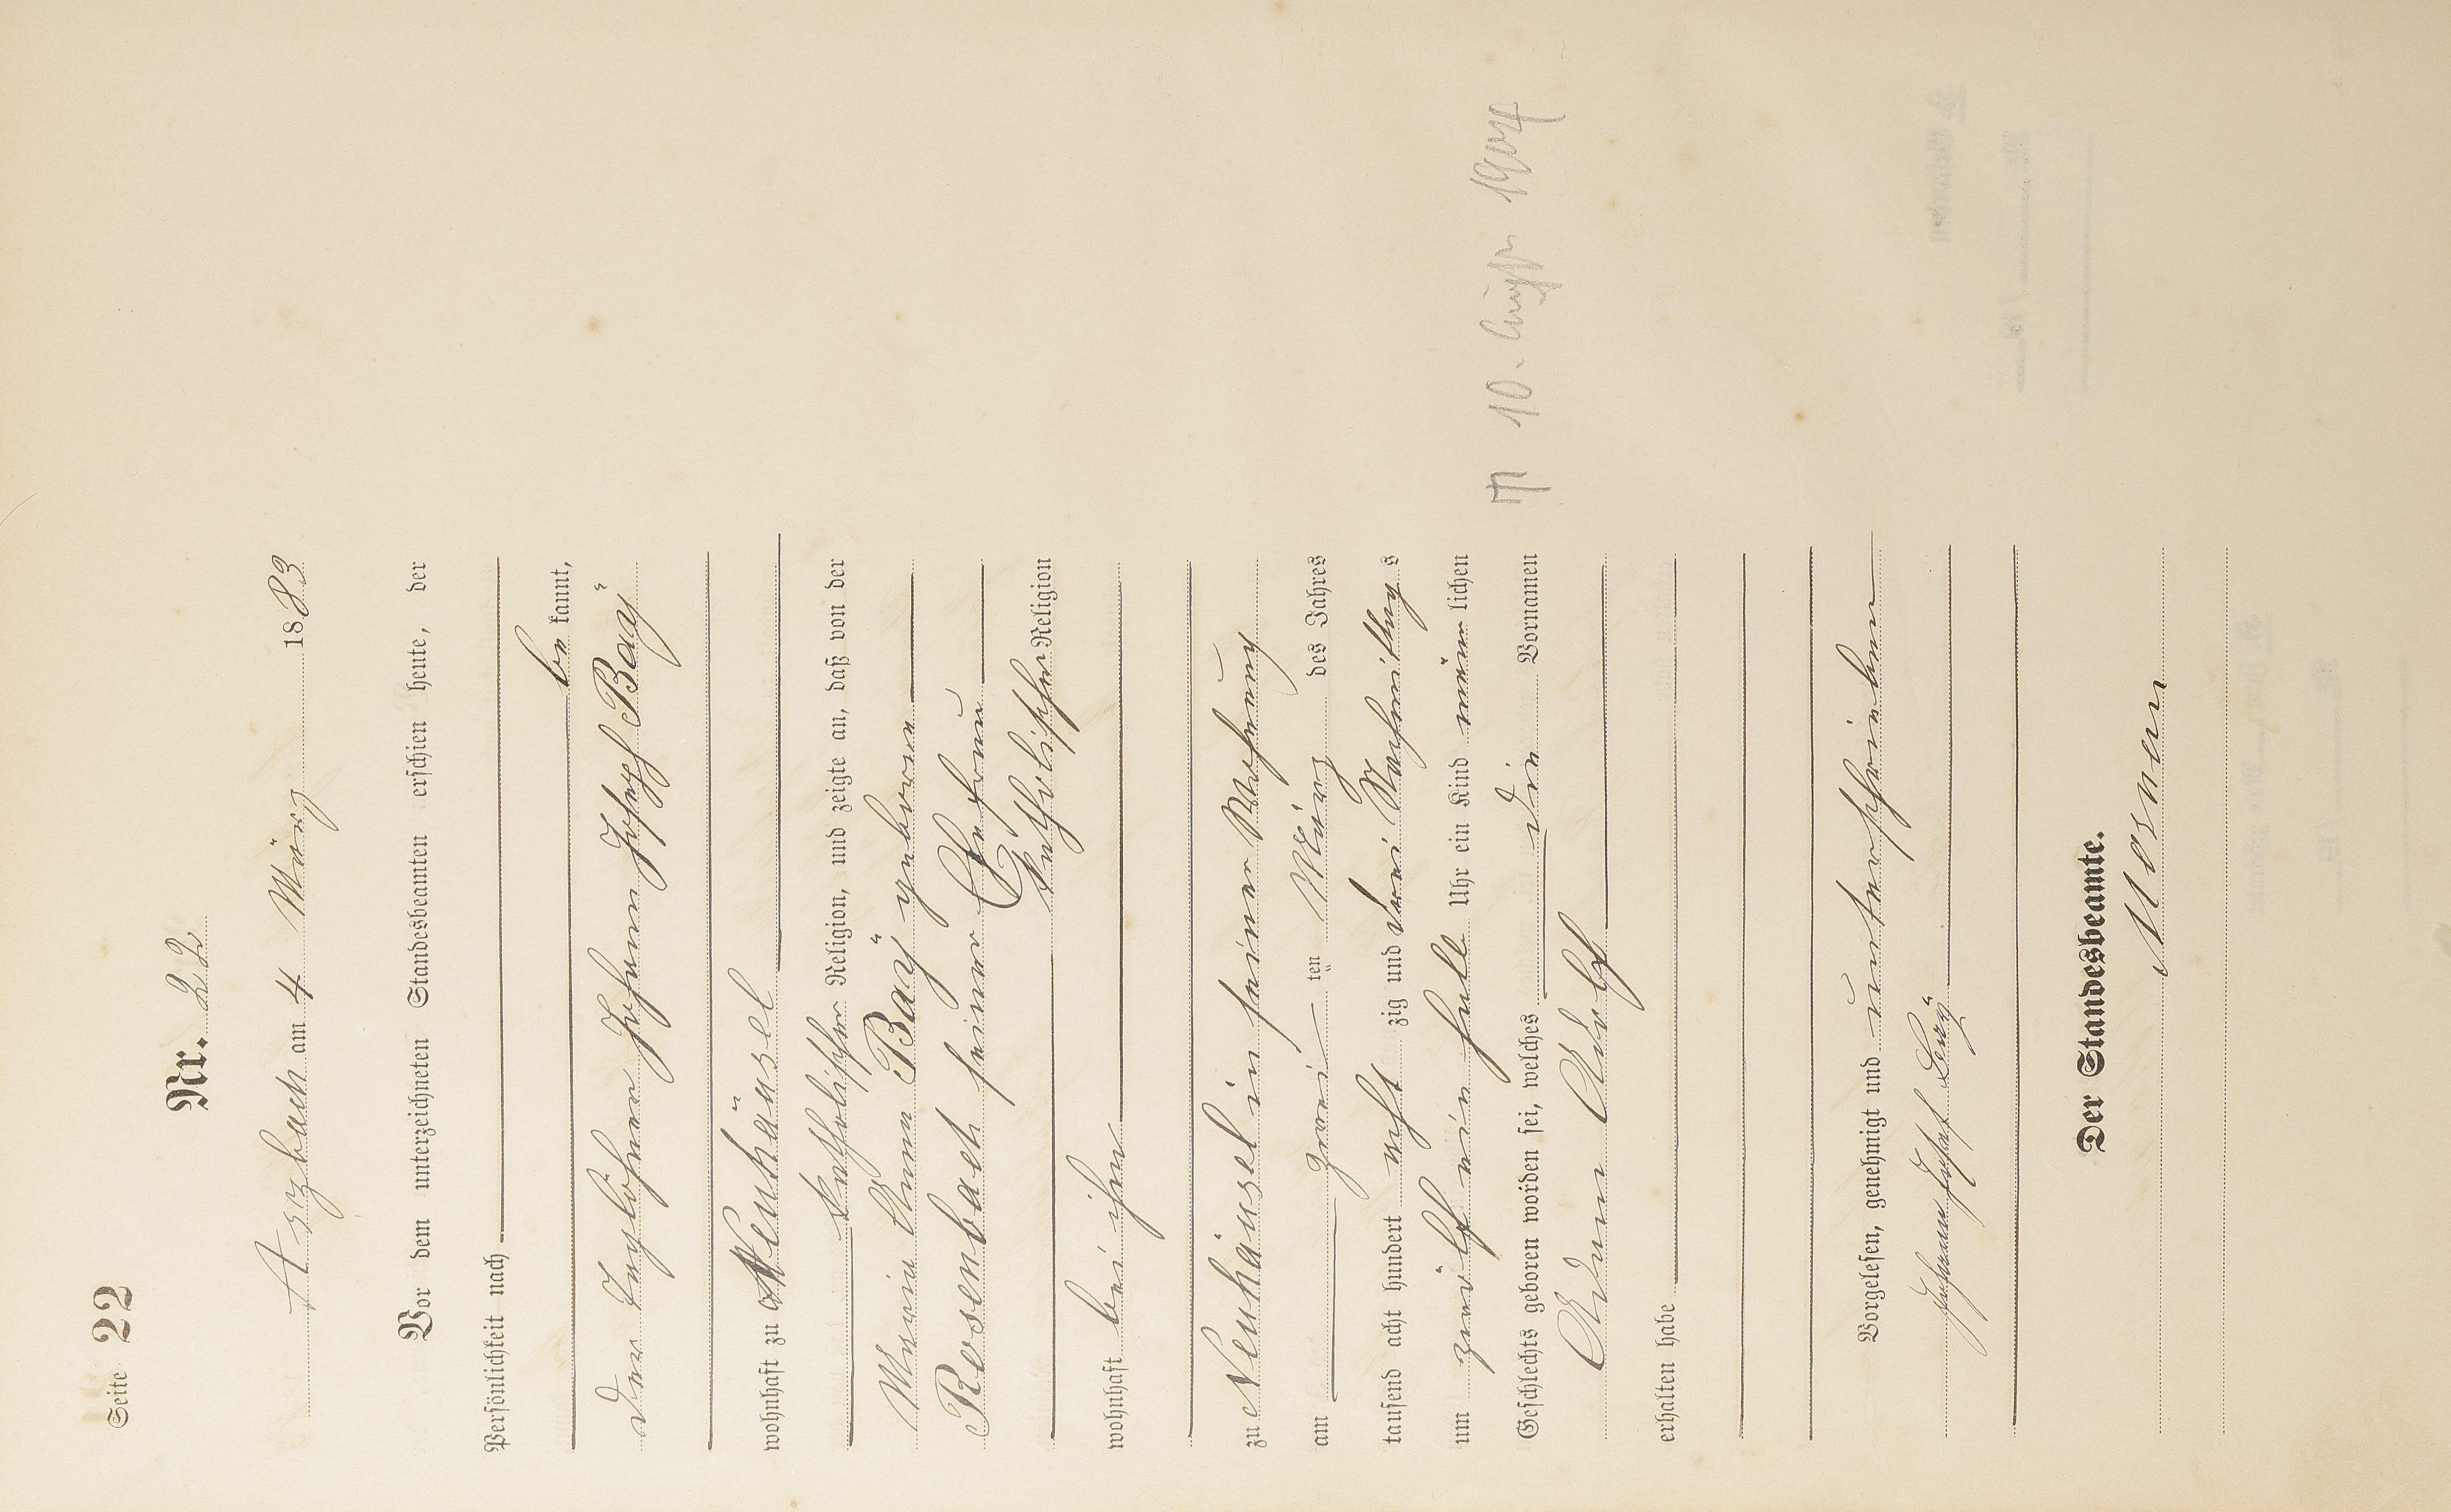 Seite 22
Nr. 22
Arzbach am 4 März 1883
Vor dem unterzeichneten Standesbeamten erschien heute, der
Persönlichkeit nach
be kannt,
der Taglöhner Johann Joseph Baÿ
wohnhaft zu Neuhäusel
katholischer Religion, und zeigte an, daß von der
Maria Anna Baÿ geborene
Rosenbach seiner Ehefrau
katholischer Religion
wohnhaft bei ihm
zu Neuhäusel in seiner Wohnung
am zwei ten März des Jahres
tausend acht hundert acht zig und drei Nachmittags
um zwölf ein halb Uhr ein Kind männ lichen
Geschlechts geboren worden sei, welches die Vornamen
Adam Adolf
erhalten habe
10. August 1904
Vorgelesen, genehmigt und unterschrieben
Johann Josef Beÿ
Der Standesbeamte.